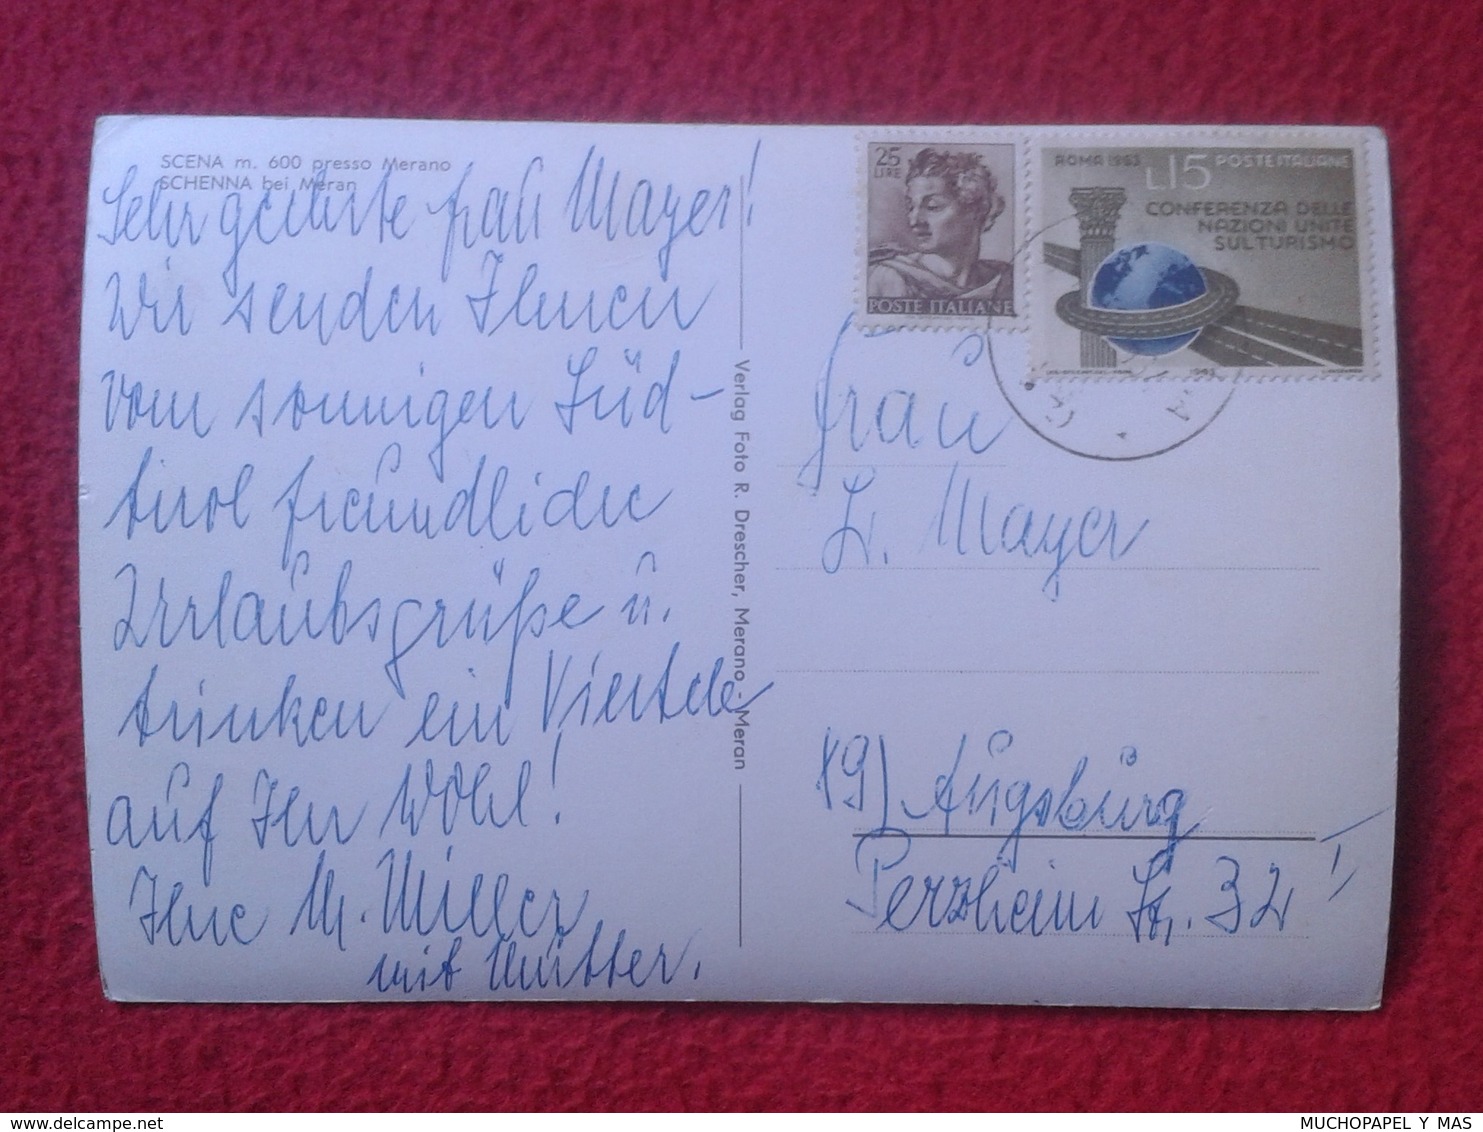 SCENA m. 600 presso Merano
SCHENNA bei Meran
Sehr geehrte Frau Mayer!
Wir senden Ihnen
vom sonnigen Süd-
tirol freundliche
Urlaubsgrüße u.
trinken ein Viertele
auf Ihr Wohl!
Ihre M. Miller
mit Mutter.
Verlag Foto R. Drescher, Merano - Meran
25
LIRE
POSTE ITALIANE
ROMA 1963
L15 POSTE ITALIANE
CONFERENZA DELLE
NAZIONI UNITE
SUL TURISMO
1963
Frau
L. Mayer
89) Augsburg
Perzheim Str. 32 I
MUCHOPAPEL Y MAS